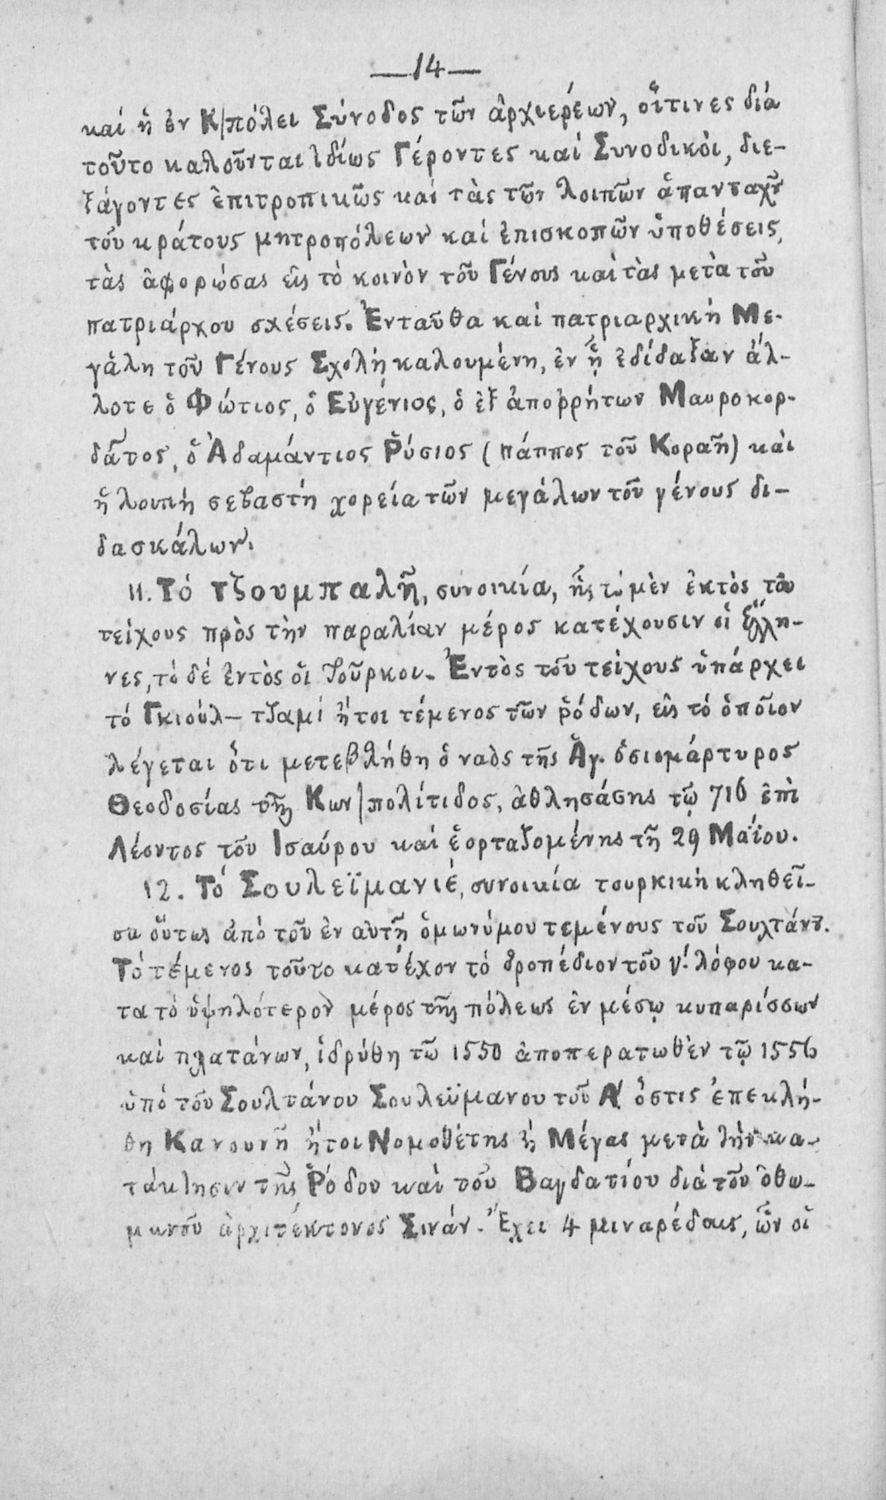 —14—
καί ἡ ἐν Κ/πόλει Σύνοδος τῶν ἀρχιερέων, οἵτινες διά
τοῦτο καλοῦνται ἰδίως Γέροντες καί Συνοδικοί, διε-
ξάγοντες ἐπιτροπικῶς καί τὰς τῶν λοιπῶν ἁπανταχοῦ
τοῦ κράτους μητροπόλεων καί ἐπισκοπῶν ὑποθέσεις,
τὰς ἀφορώσας εἰς τὸ κοινὸν τοῦ Γένους καί τὰς μετὰ τοῦ
πατριάρχου σχέσεις. Ἐνταῦθα καί πατριαρχική Με-
γάλη τοῦ Γένους Σχολή καλουμένη, ἐν ᾗ ἐδίδαξαν ἄλ-
λοτε ὁ Φώτιος, ὁ Εὐγένιος, ὁ ἐξ ἀποῤῥήτων Μαυροκορ-
δᾶτος, ὁ Ἀδαμάντιος Ῥύσιος (πάππος τοῦ Κοραῆ) καί
ἡ λοιπή σεβαστή χορεία τῶν μεγάλων τοῦ γένους δι-
δασκάλων.
11. Τό Τζουμπαλῆ, συνοικία, ἧς τό μὲν ἐκτὸς τοῦ
τείχους πρὸς τὴν παραλίαν μέρος κατέχουσιν οἱ Ἕλλη-
νες, τό δέ ἐντὸς οἱ Τοῦρκοι. Ἐντὸς τοῦ τείχους ὑπάρχει
τό Γκιούλ-τζαμί ἤτοι τέμενος τῶν ῥόδων, εἰς τό ὁποῖον
λέγεται ὅτι μετεβλήθη ὁ ναὸς τῆς Ἁγ. ὁσιομάρτυρος
Θεοδοσίας τῆς Κων/πολίτιδος, ἀθλησάσης τῷ 716 ἐπί
Λέοντος τοῦ Ἰσαύρου καί ἑορταζομένης τῇ 29 Μαΐου.
12. Τό Σουλεϊμανιέ, συνοικία τουρκική κληθεῖ-
σα οὕτως ἀπό τοῦ ἐν αὐτῇ ὁμωνύμου τεμένους τοῦ Σουλτάν.
Τό τέμενος τοῦτο κατέχον τό ὀροπέδιον τοῦ γ΄. λόφου κα-
τα τό ὑψηλότερον μέρος τῆς πόλεως ἐν μέσῳ κυπαρίσσων
καί πλατάνων, ἱδρύθη τῷ 1550 ἀποπερατωθὲν τῷ 1556
ὑπό τοῦ Σουλτάνου Σουλεϋμανου τοῦ Α΄ ὅστις ἐπεκλή-
θη Κανουνῆ ἤτοι Νομοθέτης ἢ Μέγας μετὰ τὴν κα-
τάκτησιν τῆς Ῥόδου καί τοῦ Βαγδατίου διά τοῦ ὀθω-
μανοῦ ἀρχιτέκτονος Σινάν. Ἔχει 4 μιναρέδαις, ὧν οἱ